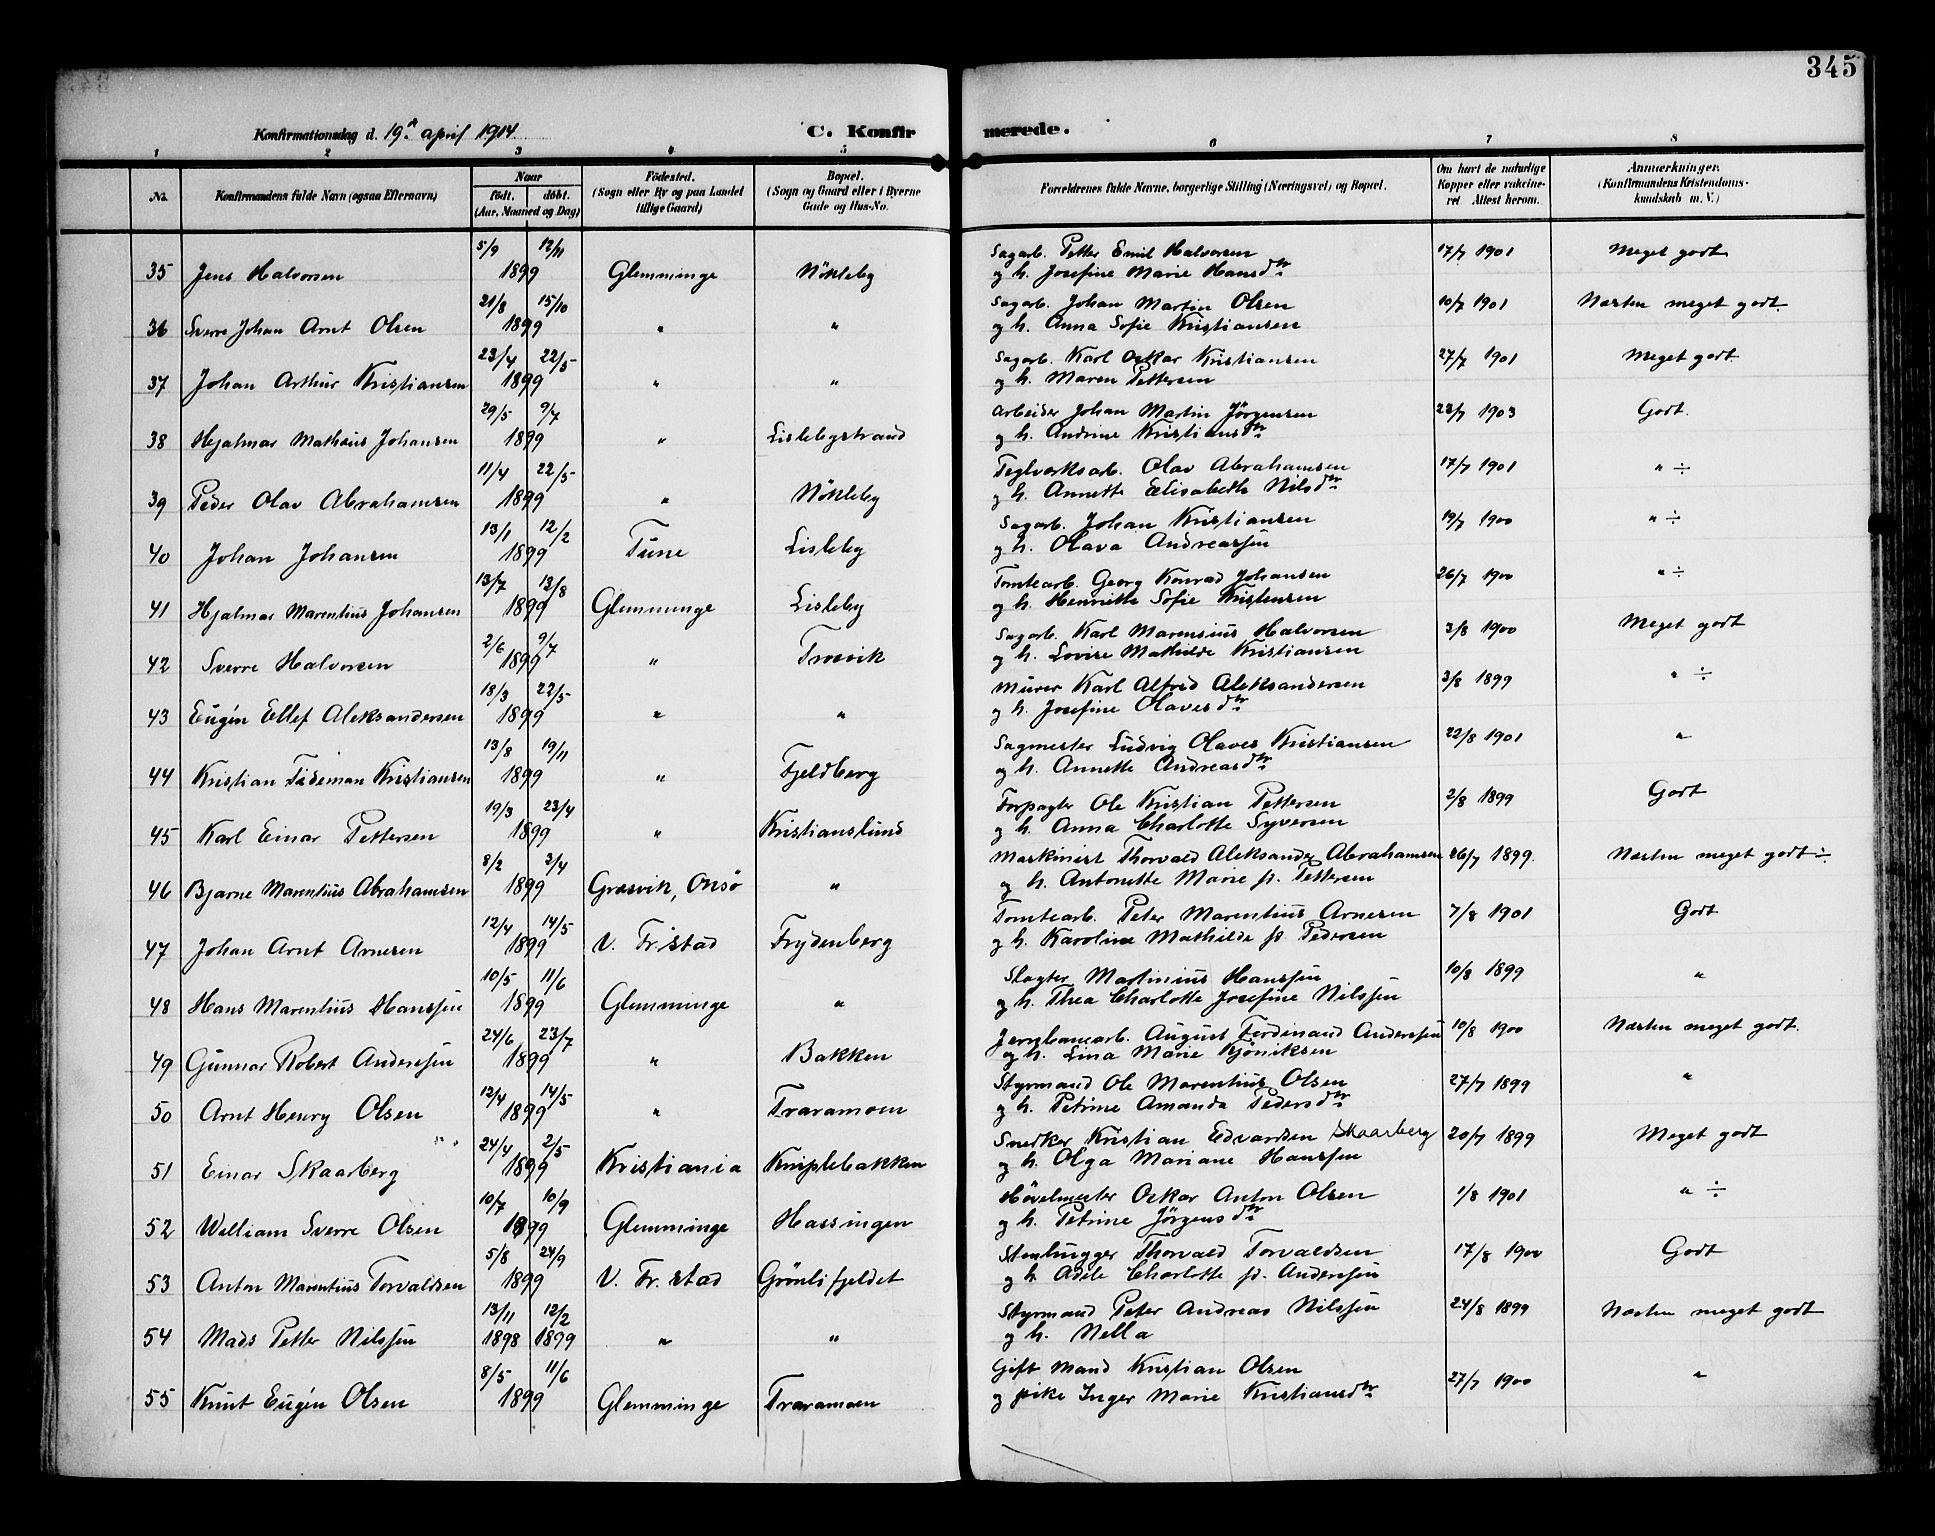 345
Konfirmationsdag d. 19de april 1914.
C. Konfirmerede.
1 2 3 4 5 6 7 8
No. | Konfirmandens fulde Navn (ogsaa Efternavn) | Naar født. døbt. (Aar, Maaned og Dag) | Fødested. (Sogn eller By og paa Landet tillige Gaard) | Bopæl. (Sogn og Gaard eller i Byerne Gade og Hus-No. | Forældrenes fulde Navne, borgerlige Stilling (Næringsvei) og Bopæl. | Om havt de naturlige Kopper eller vakcineret Attest herom. | Anmærkninger. (Konfirmandens Kristendomskundskab m. V.)
35 Jens Halvorsen 5/9 12/11 1899 Glemminge Nökleby Sagarb. Petter Emil Halvorsen 17/7 1901 Meget godt
og h. Josefine Marie Hansdtr
36 Sverre Johan Arnt Olsen 21/8 15/10 1899 " " Sagarb. Johan Martin Olsen 10/7 1901 Næsten meget godt.
og h. Anna Sofie Kristiansen
37 Johan Arthur Kristiansen 23/4 22/5 1899 " " Sagarb. Karl Oskar Kristiansen 27/7 1901 Meget godt
og h. Maren Pettersen
38 Hejalmar Mathæus Johansen 29/5 9/7 1899 " Lislebystrand Arbeider Johan Martin Jörgensen 1903 Godt.
og h. Andrine Kristiansdtr
39 Peder Olav Abrahamsen 11/4 22/5 1899 " Nökleby Teglverksarb. Olav Abrahamsen 17/7 1901 " ÷
og h. Annette Elisabeth Nilsdtr
40 Johan Johansen 13/1 12/2 1899 Tune Lisleby Sagarb. Johan Kristiansen 19/7 1900 " ÷
og h. Olava Andreassen
41 Hjalmar Marentius Johansen 13/7 13/8 1899 Glemminge Lisleby Tomtearb. Georg Konrad Johansen 26/7 1900 " ÷
og h. Henriette Sofie Kristensen
42 Sverre Halvorsen 2/6 9/7 1899 " Trosvik Sagarb. Karl Marensius Halvorsen 3/8 1900 Meget godt
og h. Lovise Mathilde Kristiansen
43 Eugén Ellef Aleksandersen 18/3 22/5 1899 " " Murer Karl Alfred Aleksandersen 3/8 1899 " ÷
og h. Josefine Olavesdtr
44 Kristian Tideman Kristiansen 13/8 19/11 1899 " Fjeldberg Sagmester Ludvig Olaves Kristiansen 22/8 1901 "
og h. Annette Andreasdtr
45 Karl Einar Pettersen 19/3 23/4 1899 " Kristianslund Forpagter Ole Kristian Pettersen 2/8 1899 Godt
og h. Anna Charlotte Syversen
46 Bjarne Marentius Abrahamsen 8/2 3/4 1899 Græsvik, Onsö " Maskinist Thorvald Aleksander Abrahamsen 26/7 1899. Næsten meget godt ÷
og h. Antonette Marie f. Pettersen
47 Johan Arnt Arnesen 12/4 14/5 1899 V. Fr.stad Frydenberg Tomtearb. Peter Marentius Arnesen 7/8 1901 Godt
og h. Karoline Mathilde f. Pedersen
48 Hans Marentius Hanssen 10/5 11/6 1899 Glemminge " Slagter Martinius Hanssen 10/8 1899 "
og h. Thea Charlotte Josefine Nilssen
49 Gunnar Robert Anderssen 24/6 23/7 1899 " Bakken Jernbanearb. August Ferdinand Anderssen 10/8 1900 Næsten meget godt.
og h. Lina Marie Kjöniksen
50 Arnt Henry Olsen 12/4 14/5 1899 " Traramoen Styrmand Ole Marentius Olsen 27/7 1899 "
og h. Petrine Amanda Pedersdtr
51 Einar Skaarberg 24/4 2/5 1899 Kristiania Kniplebakken Snedker Kristian Edvardsen Skaarberg 20/7 1899 Meget godt
og h. Olga Mariane Hanssen
52 William Sverre Olsen 10/7 10/9 1899 Glemminge Hassingen Hövelmester Oskar Anton Olsen 1/8 1901 " ÷
og h. Petrine Jörgensdtr
53 Anton Marentius Torvaldsen 5/8 24/9 1899 V. Fr.stad Grönlifjeldet Stenhugger Thorvald Torvaldsen 17/8 1900 Godt
og h. Adele Charlotte f. Anderssen
54 Mads Petter Nilssen 13/11 1898 12/2 1899 " " Styrmand Peter Andreas Nilssen 24/8 1899 Næsten meget godt
og h. Nella
55 Knut Eugén Olsen 8/5 11/6 1899 Glemminge Traramoen Gift Mand Kristian Olsen 27/7 1900 "
og pike Inger Marie Kristiansdtr